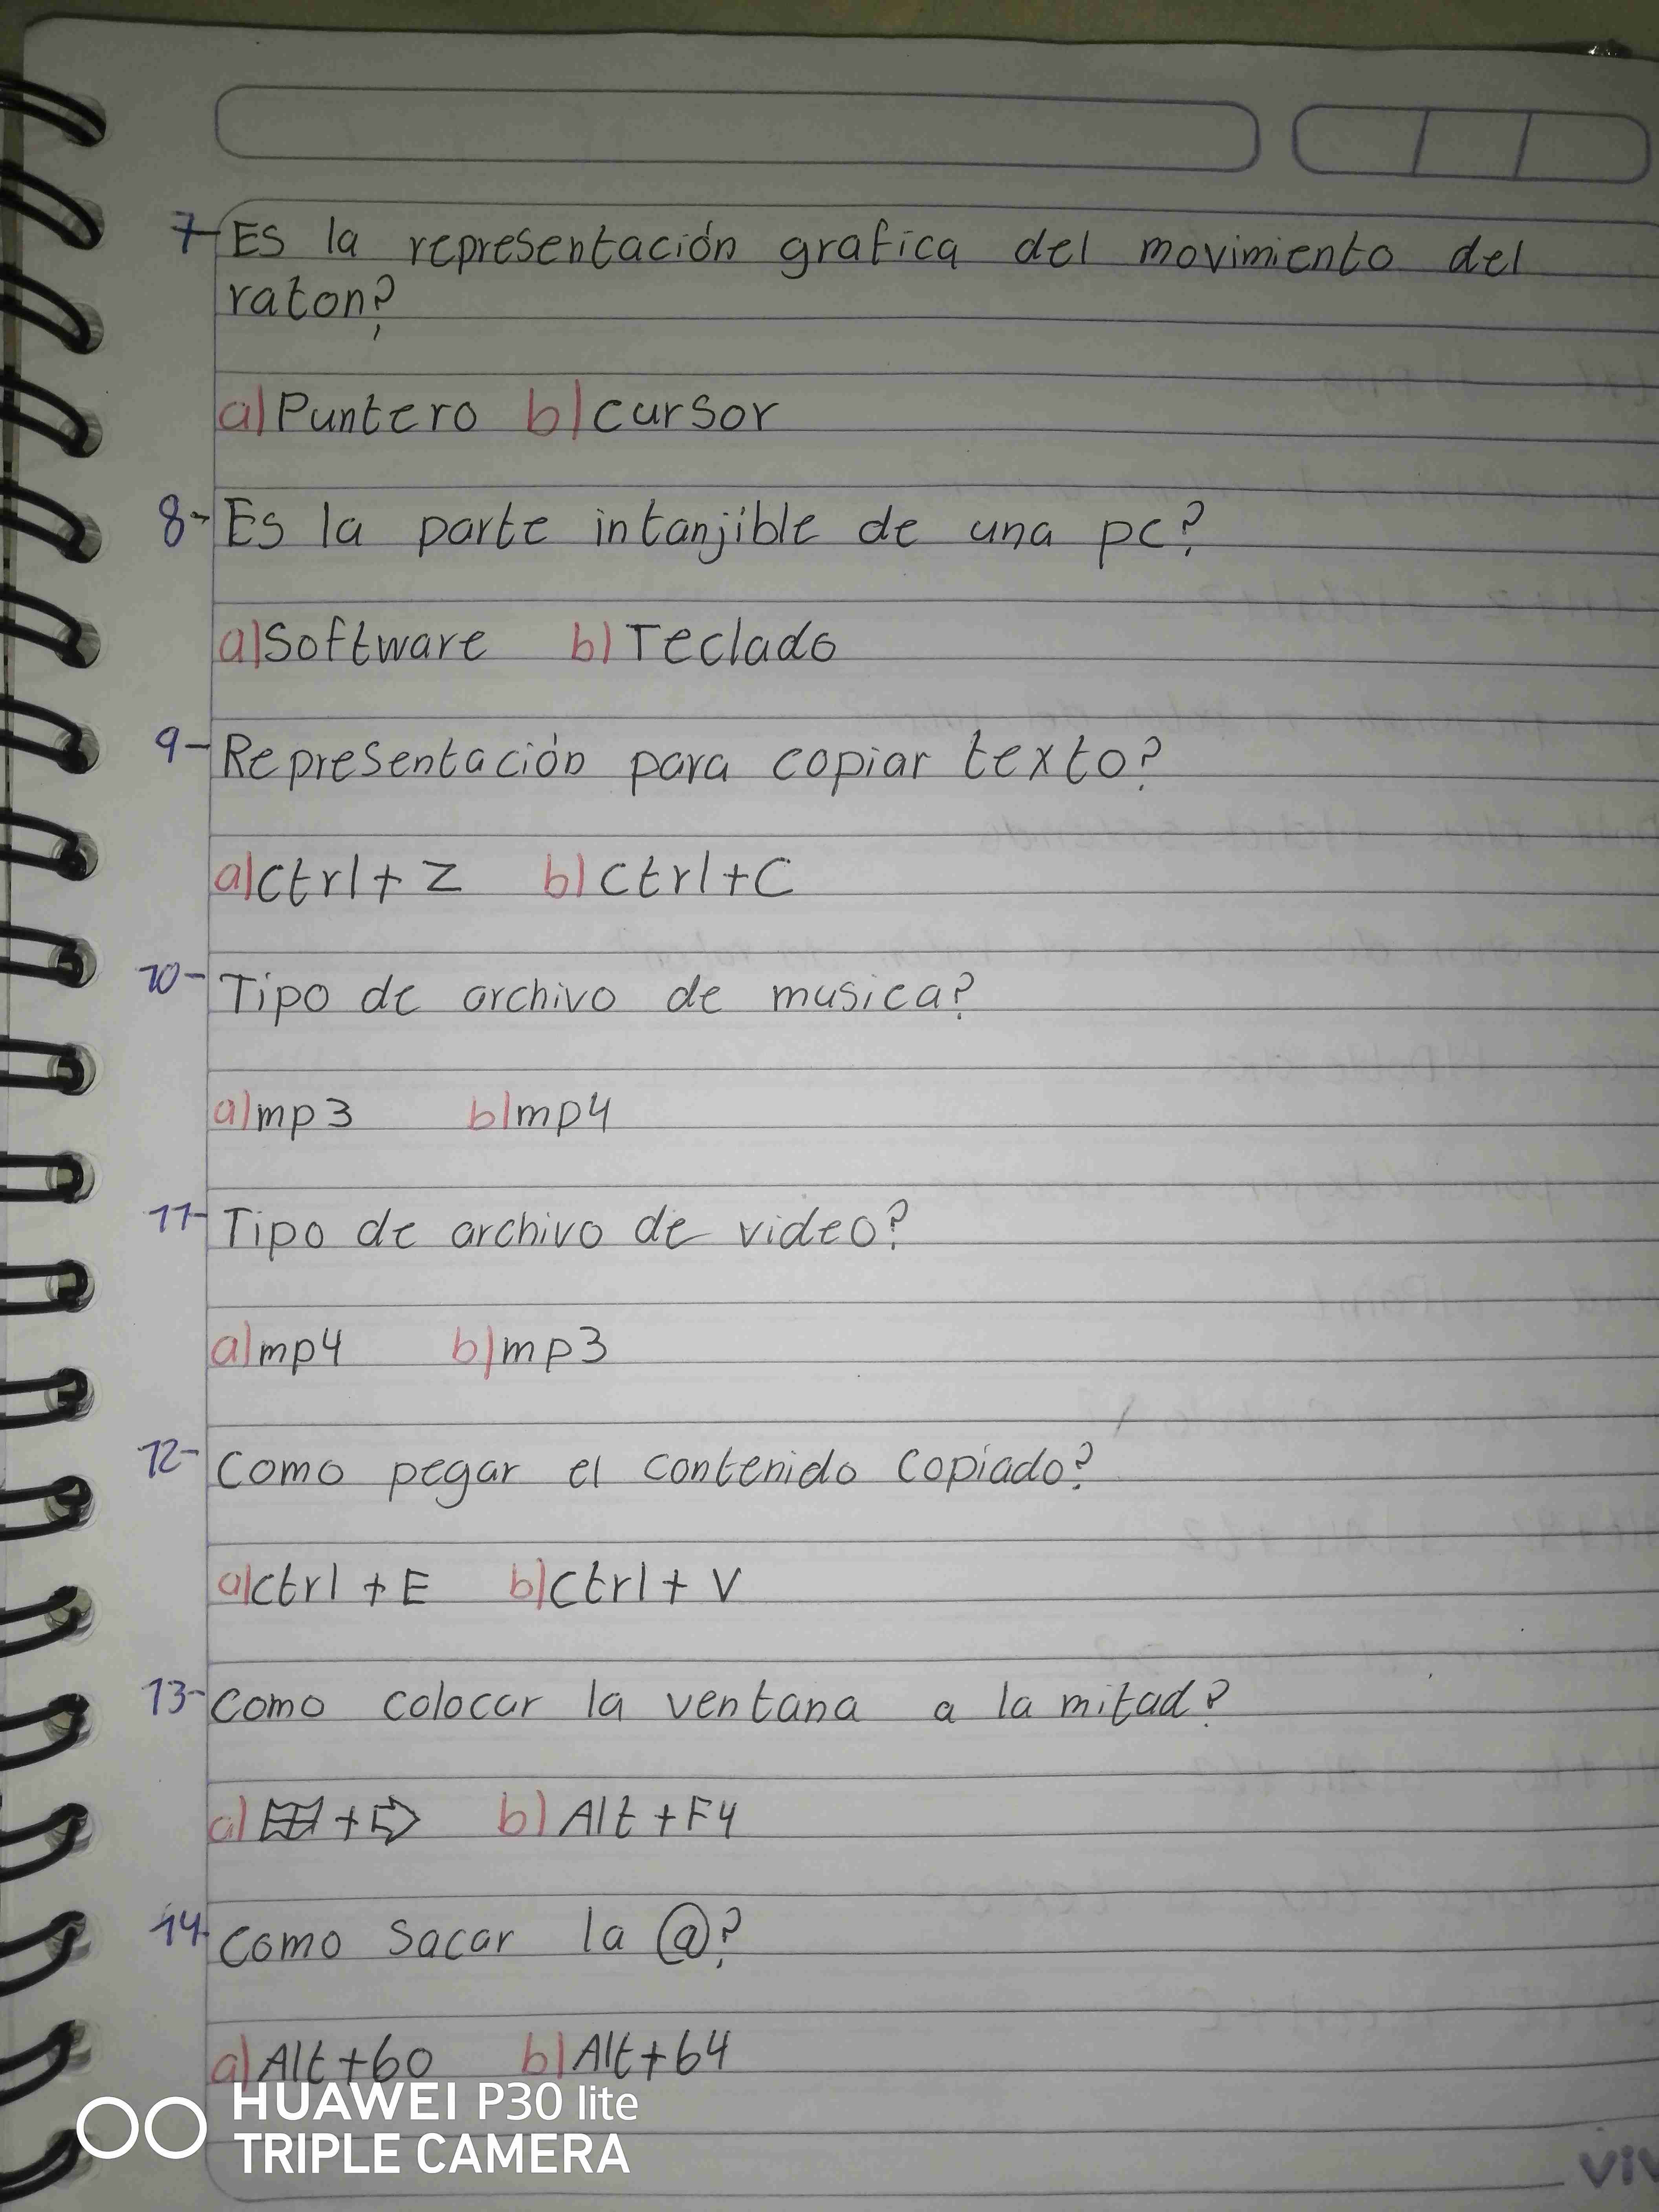 7- Es la representación grafica del movimiento del
raton?
a) Puntero b) cursor
8- Es la parte intanjible de una pc?
a) Software b) Teclado
9- Representación para copiar texto?
a) Ctrl + Z b) Ctrl + C
10- Tipo de archivo de musica?
a) mp3 b) mp4
11- Tipo de archivo de video?
a) mp4 b) mp3
12- Como pegar el contenido copiado?
a) Ctrl + E b) Ctrl + V
13- Como colocar la ventana a la mitad?
a) ⊞ + ⇨ b) Alt + F4
14- Como sacar la @?
a) Alt + 60 b) Alt + 64
HUAWEI P30 lite
TRIPLE CAMERA